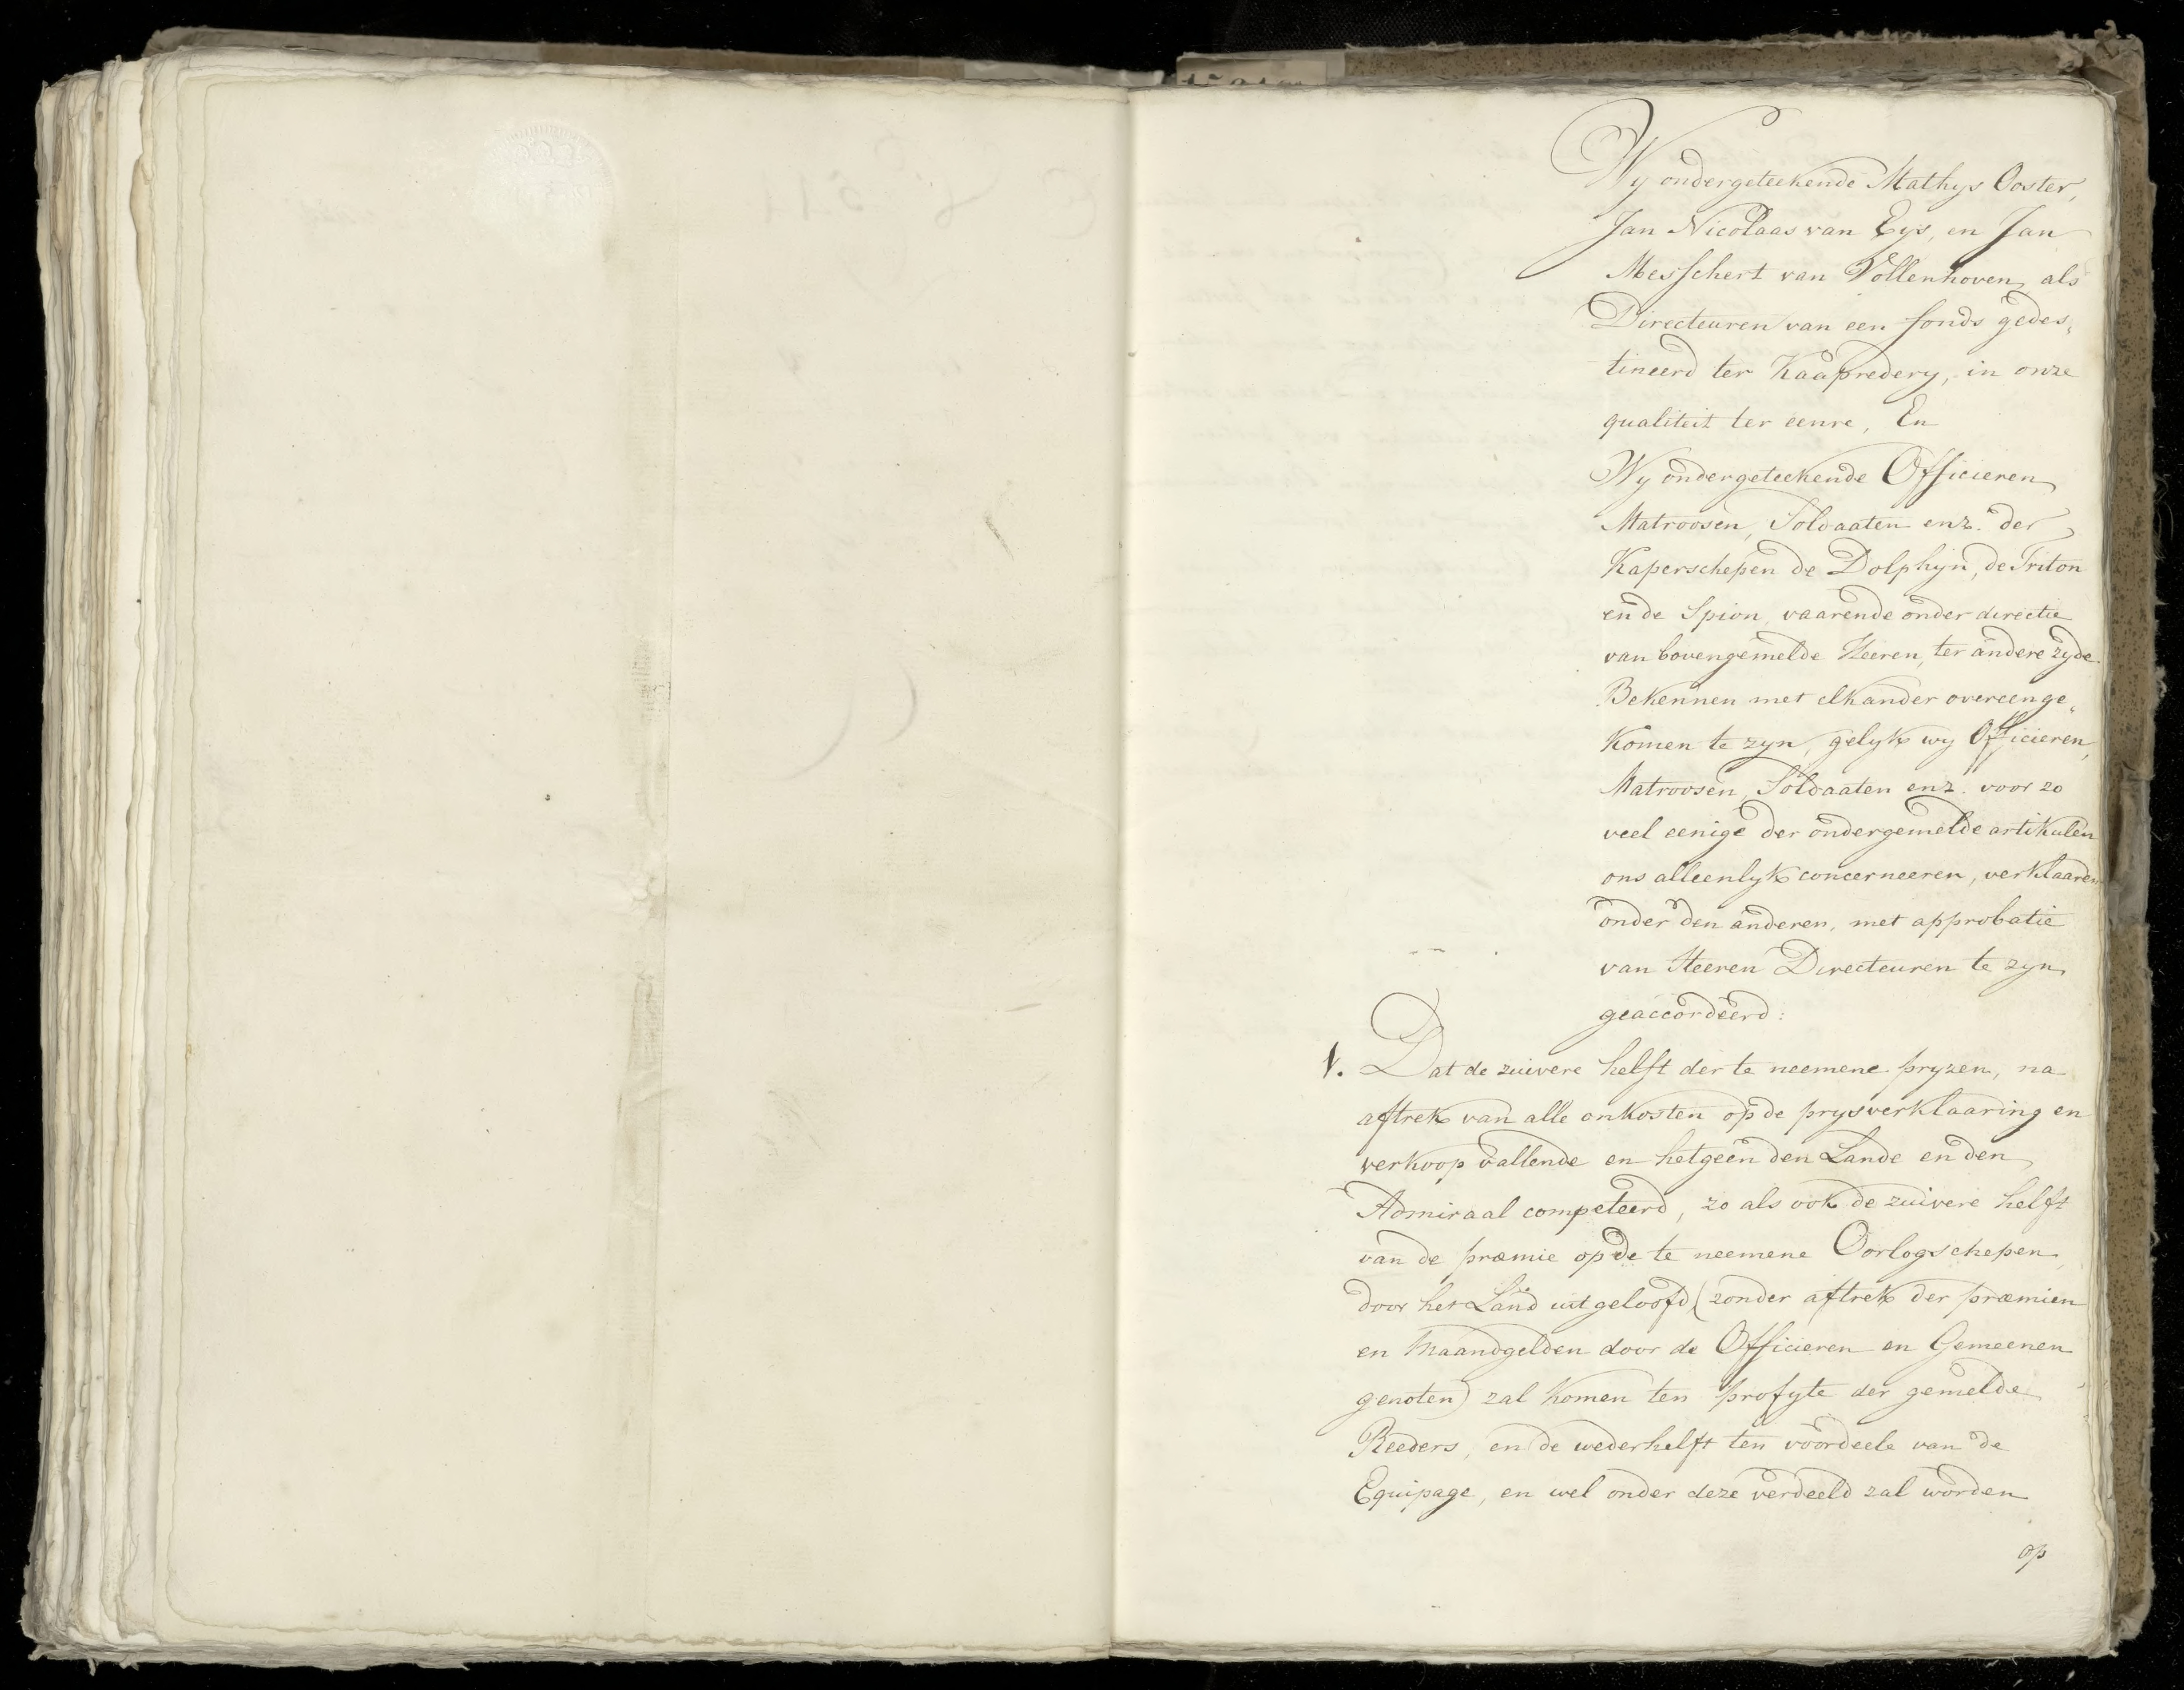 Wy ondergeteekende Mathys Ooster,
Jan Nicolaas van Eys, en Jan
Messchert van Vollenhoven, als
Directeuren van een fonds gedes„
tineerd ter Kaapredery, in onze
qualiteit ter eenre, En
Wy ondergeteekende Officieren
Matroosen, Soldaaten enz. der
Kaperschepen de Dolphyn, de Triton
en de Spion, vaarende onder directie
van bovengemelde Heeren, ter andere zyde.
Bekennen met elkander overeenge„
komen te zyn, gelyk wy Officieren,
Matroosen, Soldaaten enz. voor zo
veel eenige der ondergemelde artikulen
ons alleenlyk concerneeren, verklaaren
onder den anderen, met approbatie
van Heeren Directeuren te zyn
geaccordeerd:
1. Dat de zuivere helft der te neemene pryzen, na
aftrek van alle onkosten op de prysverklaaring en
verkoop vallende en hetgeen den Lande en den
Admiraal competeerd, zo als ook de zuivere helft
van de præmie op de te neemene Oorlogschepen,
door het Land uitgeloofd (zonder aftrek der præmien
en Maandgelden door de Officieren en Gemeenen
genoten) zal komen ten profyte der gemelde
Reeders, en de wederhelft ten voordeele van de
Equipage, en wel onder deze verdeeld zal worden
op